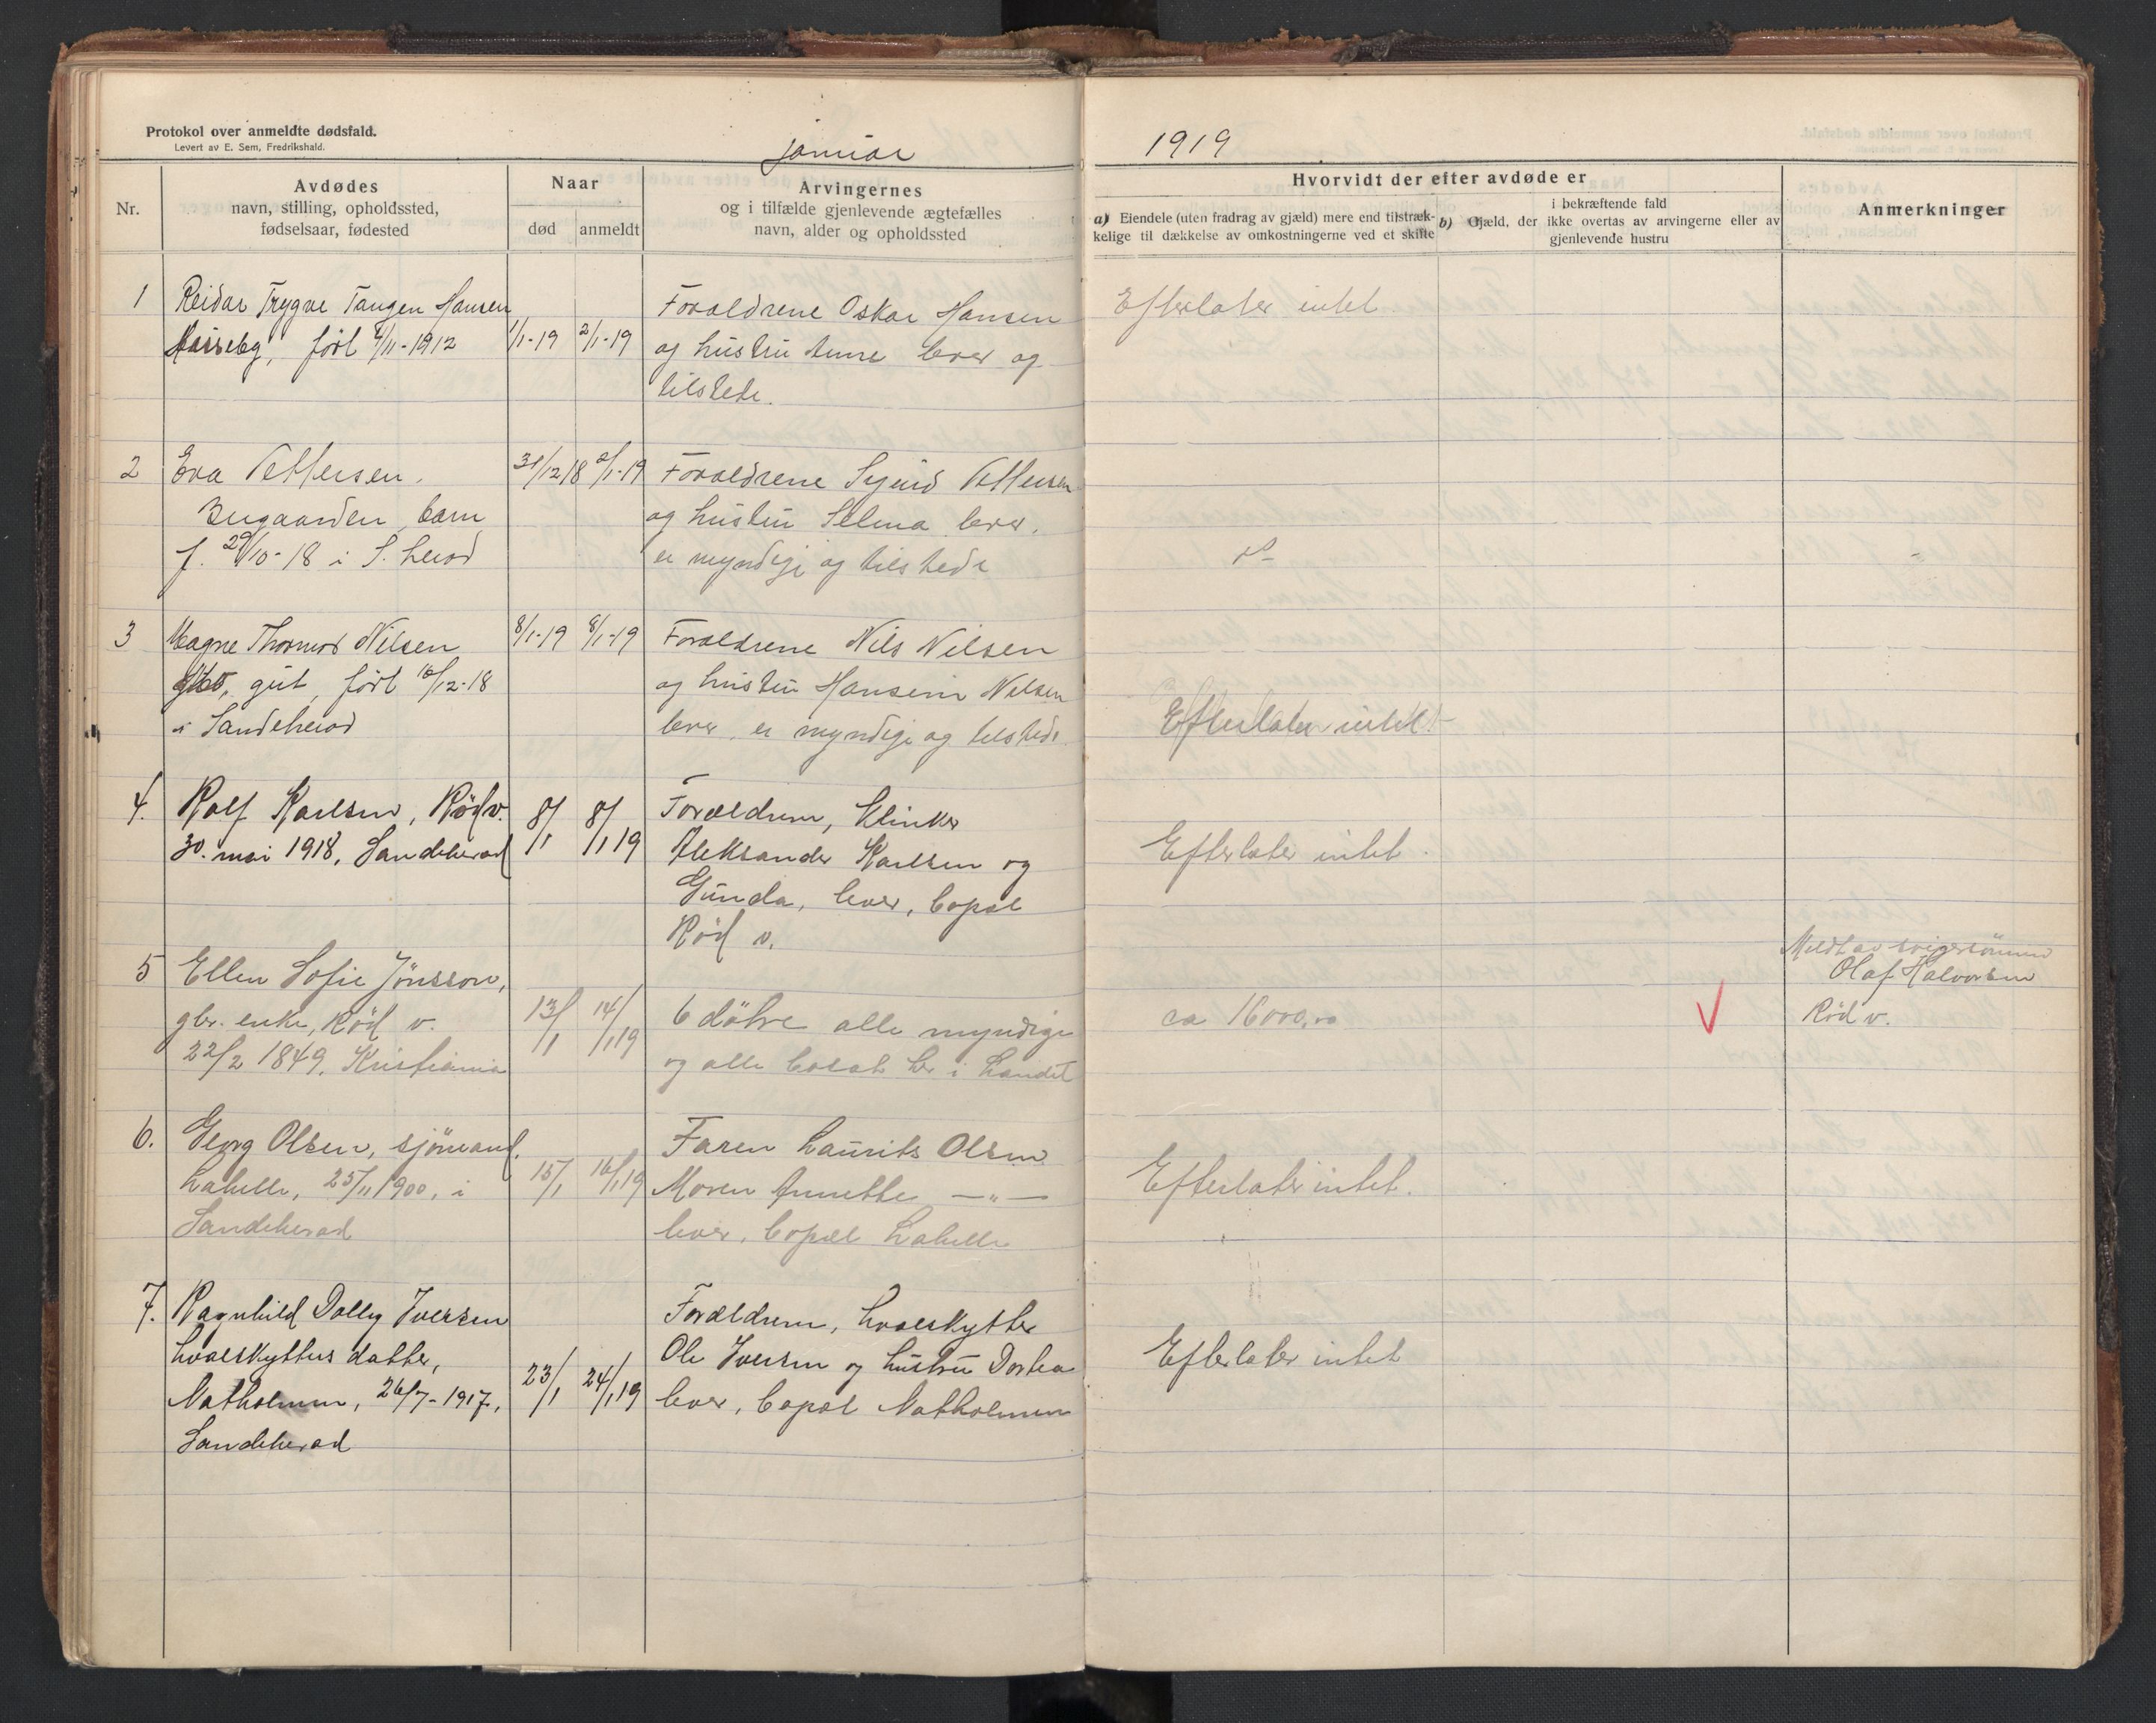 Protokol over anmeldte dødsfald.
Levert av E. Sem, Fredrikshald.
januar 1919
Nr.
Avdødes
navn, stilling, opholdssted,
fødselsaar, fødested
Naar
død
anmeldt
Arvingernes
og i tilfælde gjenlevende ægtefælles
navn, alder og opholdssted
Hvorvidt der efter avdøde er
a) Eiendele (uten fradrag av gjæld) mere end tilstræk-
kelige til dækkelse av omkostningerne ved et skifte
b) Gjæld, der
i bekræftende fald
ikke overtas av arvingerne eller av
gjenlevende hustru
Anmerkninger
1
Reidar Trygve Tangen Hansen
født 4/11-1912
1/1-19
2/1-19
Forældrene Oskar Hansen
og hustru lever og
tilstede.
Efterlater intet
2
Eva Pettersen.
Bugaarden, barn
f. 29/10-18 i S. herod
31/12 18
2/1-19
Forældrene Sigurd Pettersen
og hustru Selma lever.
er myndige og tilstede
do
"
3
Magne Thormod Nilsen
gut, født 16/12-18
i Sandeherod
8/1-19
8/1-19
Forældrene Nils Nilsen
og hustru Hansine Nilsen
lever, er myndige og tilstede.
Efterlater intet.
4.
Rolf Karlsen, Rød v.
30. mai 1918, Sandeherad
8/1
8/1 19
Forældrene, klinker
Aleksander Karlsen og
Gunda, lever, bopæl
Rød v.
Efterlater intet.
5
Ellen Sofie Jönsson,
gbr. enke, Rød v.
22/2 1849, Kristiania
13/1
14/1 19
6 døtre alle myndige
og alle bosat her i landet
ca 16000,00
V
Meldt av svigersønnen
Olaf Halvorsen
Rød v.
6.
Georg Olsen, sjömand,
Lahelle, 25/11 1900, i
Sandeherad
15/1
16/1 19
Faren Laurits Olsen
Moren Annette —"—
lever, bopæl Lahelle
Efterlater intet.
7.
Ragnhild Dolly Iversen
hvalskytters datter,
Natholmen, 26/7-1917,
Sandeherad
23/1
24/1 19
Forældrene, hvalskytter
Ole Iversen og hustru Dortea
lever, bopæl Natholmen
Efterlater intet